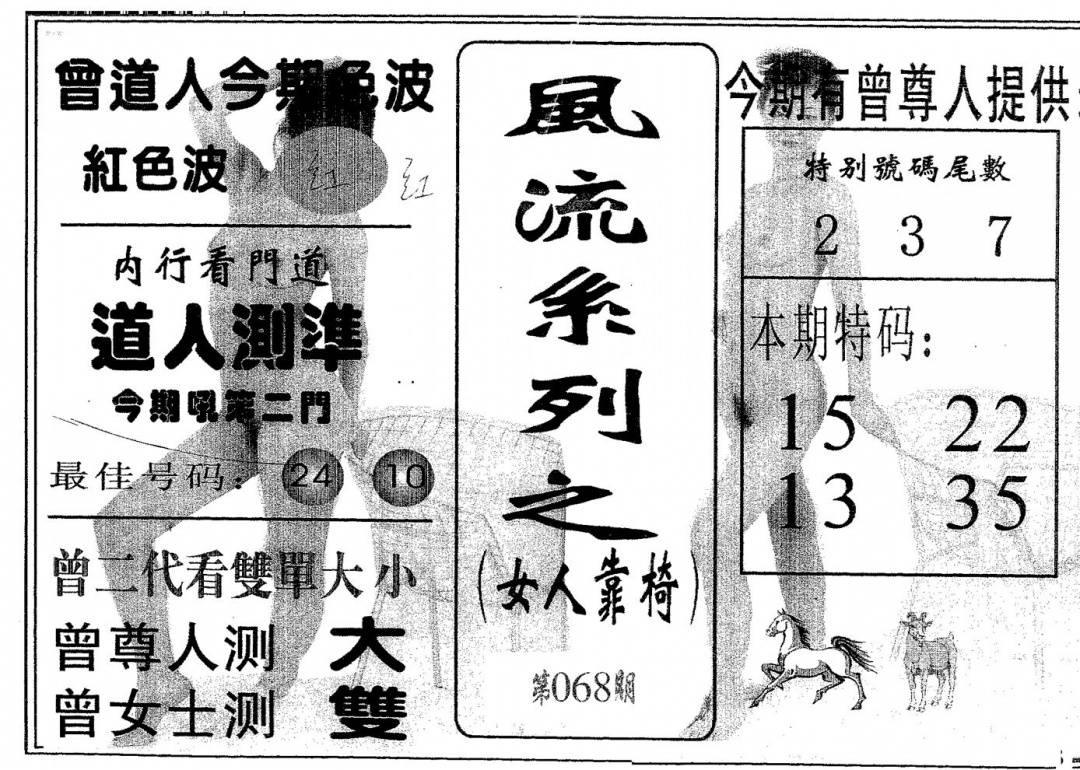 曾道人今期色波
紅色波 红 红
内行看門道
道人測準
今期吼第二門
最佳号码: 24 10
曾二代看雙單大小
曾尊人测 大
曾女士测 雙
風流系列之
(女人靠椅)
第068期
今期有曾尊人提供
特别號碼尾數
2 3 7
本期特码:
15 22
13 35